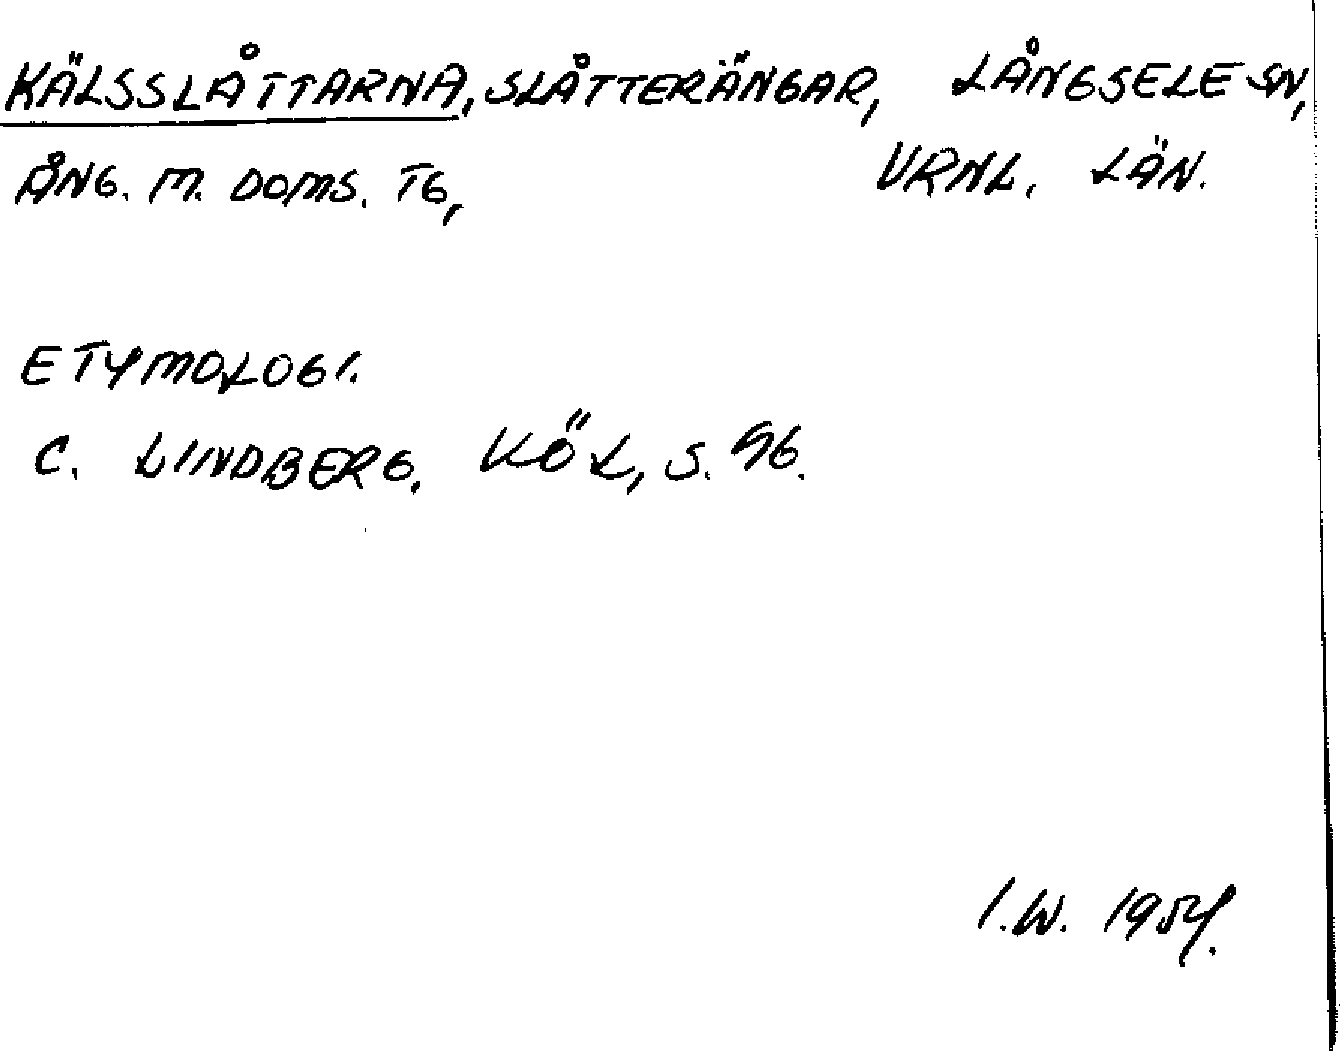 KÄLSSLÅTTARNA, SLÅTTERÄNGAR, LÅNGSELE SN,
ÅNG. M. DOMS. TG, VRNL. LÄN.
ETYMOLOGI.
C. LINDBERG, KÖL, S.
I.W. 1954.